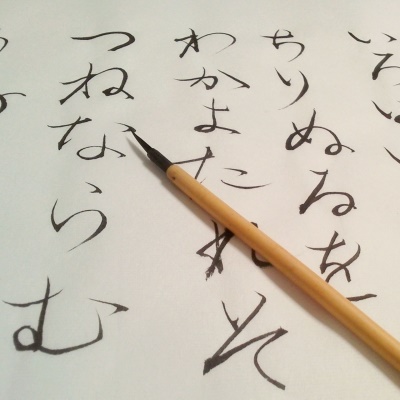 いろは
ちりぬるを
わかよたれそ
つねならむ